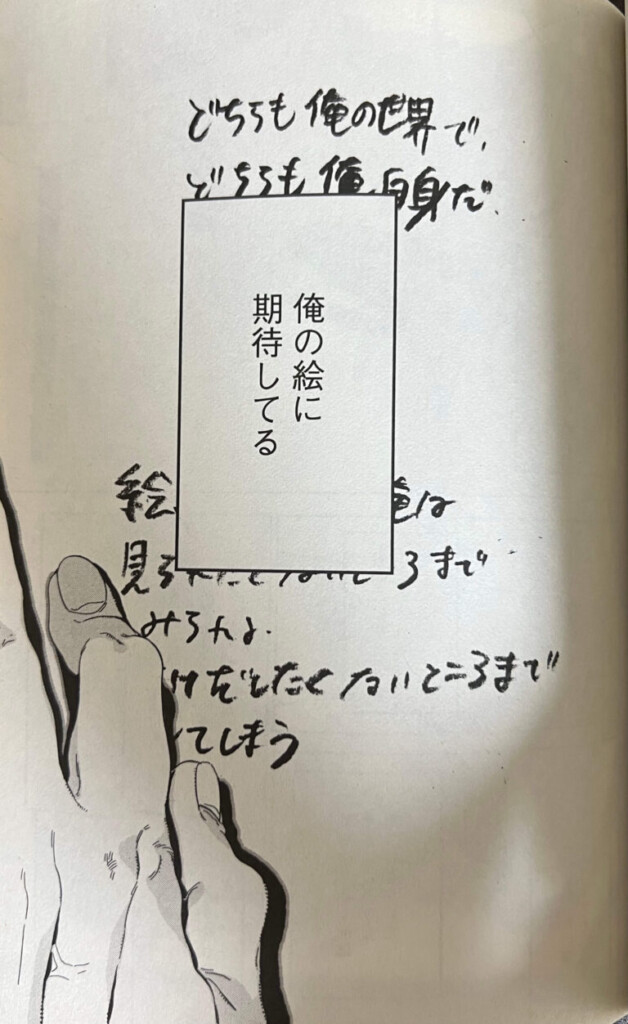 どちらも俺の世界で、
どちらも俺自身だ、
俺の絵に
期待してる
絵
俺は
ろまで
みられる、
たくないところまで
てしまう